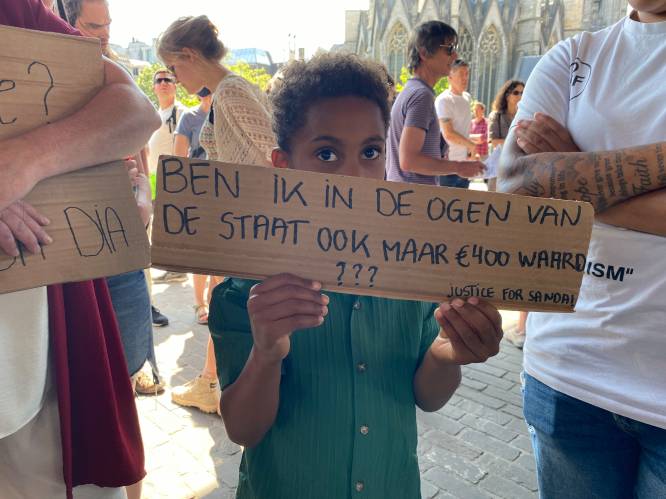 ?
DIA
BEN IK IN DE OGEN VAN
DE STAAT OOK MAAR €400 WAARD
???
JUSTICE FOR SANDA!
ISM"
Faith